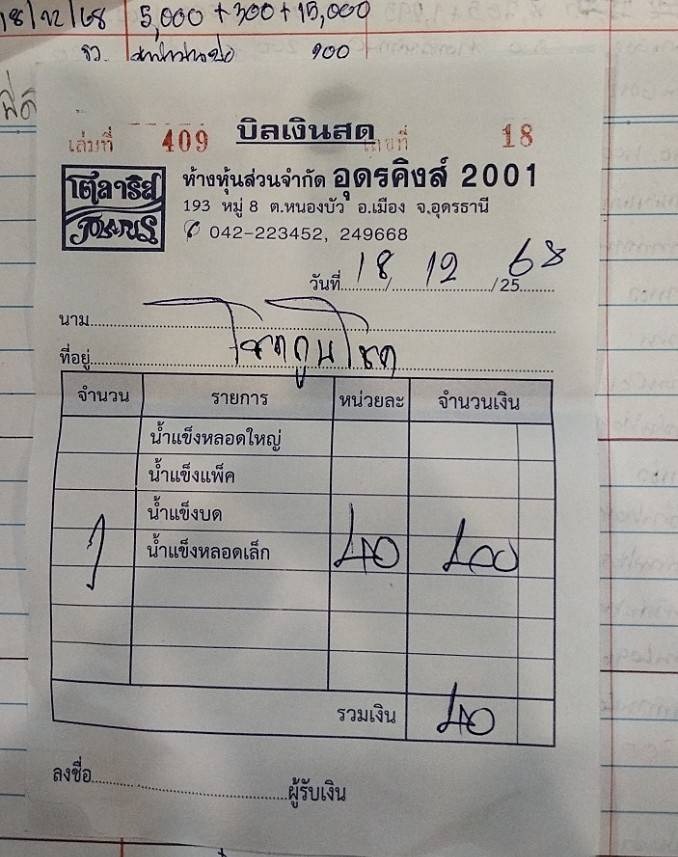 18/12/68 5,000 + 300 + 15,000
900
บิลเงินสด
เล่มที่ 409 เลขที่ 18
โพลาริส
POLARIS
ห้างหุ้นส่วนจำกัด อุดรคิงส์ 2001
193 หมู่ 8 ต.หนองบัว อ.เมือง จ.อุดรธานี
042-223452, 249668
วันที่ 18 / 12 / 25 68
นาม
ที่อยู่
จำนวน รายการ หน่วยละ จำนวนเงิน
น้ำแข็งหลอดใหญ่
น้ำแข็งแพ็ค
น้ำแข็งบด
1 น้ำแข็งหลอดเล็ก 40
รวมเงิน 40
ลงชื่อ ผู้รับเงิน